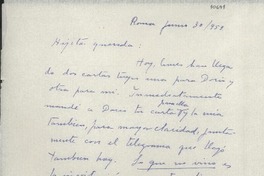 Roma Junio 20/958
Hijita querida:
Hoy, lunes han llega
do dos cartas tuyas una para Doris y
otra para mí. Inmediatamente
mandé a Doris tu carta y la mía
también, para mayor claridad, junta-
mente con el telegrama que llegó
también hoy. Lo que no vino es